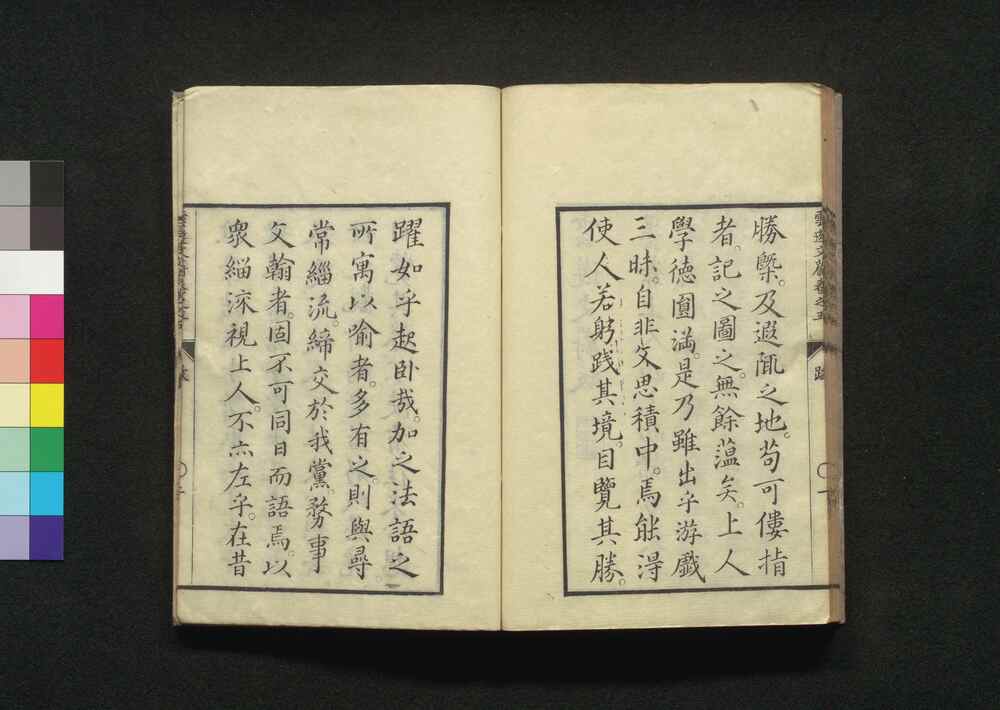 勝槩。及遐陬之地。苟可僂指
者。記之圖之。無餘薀矣。上人
學德圓滿。是乃雖出乎游戲
三昧。自非文思積中。焉能得
使人若躬踐其境。目覽其勝。
躍如乎起卧哉。加之法語之
所寓以喻者。多有之。則與尋
常緇流。締交於我黨。務事
文翰者。固不可同日而語焉。以
衆緇深視上人。不亦左乎。在昔